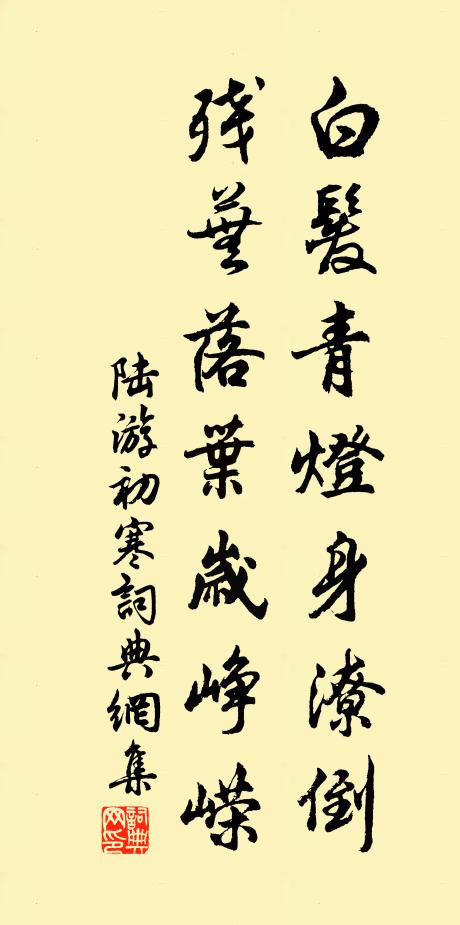 白髮青燈身潦倒
殘蕪落葉歲崢嶸
陸游初寒詞典網集
詞典网印